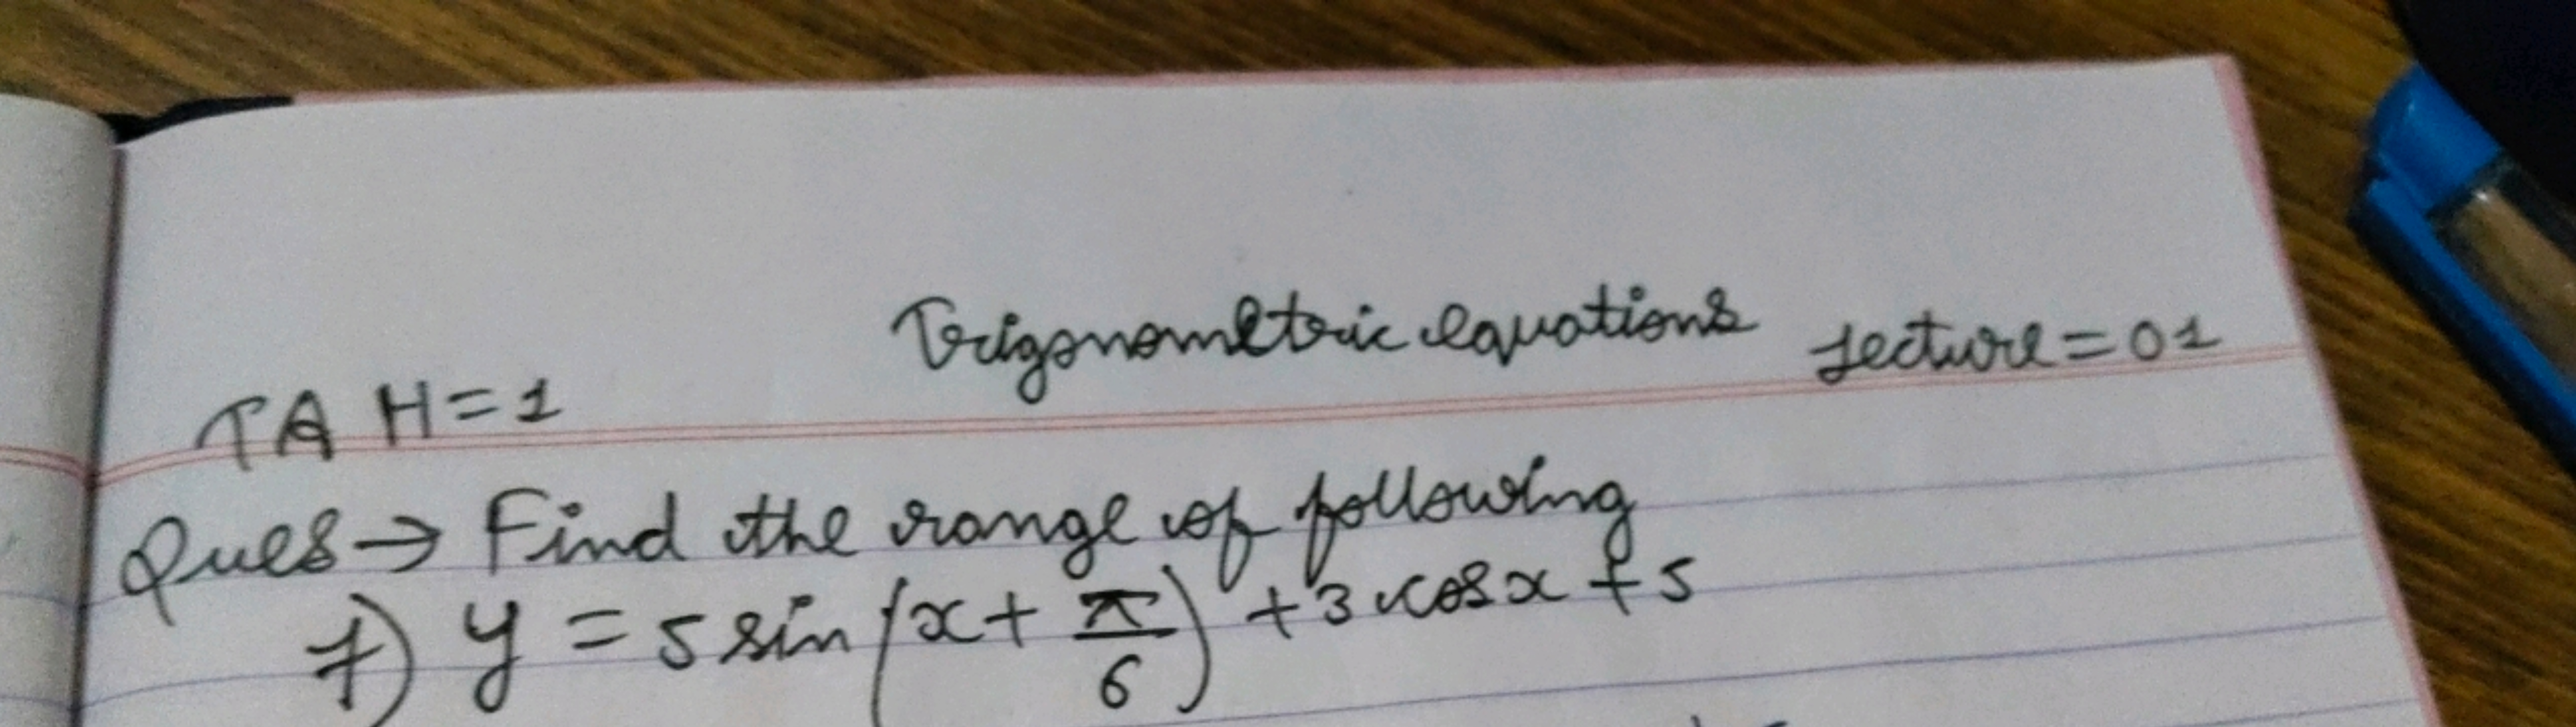 Trigonometric equations Lecture=01
TA H=1
Ques→ Find the range of following
7) y = 5 sin(x + π/6) + 3 cosx + 5